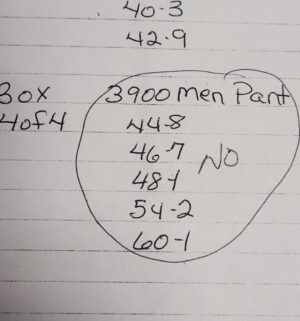 40-3
42-9
Box 3900 Men Pant
4 of 4 44-8
46-7 NO
48-1
54-2
60-1